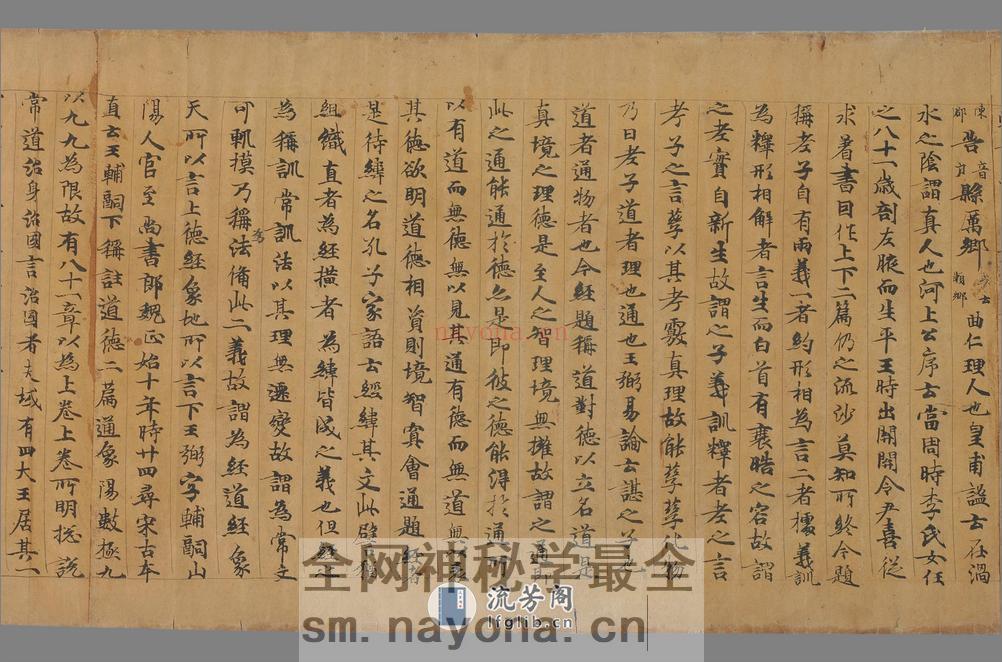 陳郡苦音户縣萬鄉或云賴鄉曲仁理人也皇甫謐云在渦
水之陰謂真人也河上公序云當周時李氏女任
之八十一歲剖左腋而生平王時出關關令尹喜從
求著書因作上下二篇仍之流沙莫知所終今題
稱老子自有兩義一者約形相為言二者據義訓
為釋形相解者言生而白首有衰晧之容故謂
之老實自新生故謂之子義訓釋者老之言
考子之言孳以其考覈真理故能孳孳化物
乃曰老子道者理也通也王弼易論云諶之子也
道者通物者也今經題稱道對德以立名道是
真境之理德是至人之智理境無擁故謂之通
此之通能通於德亦是即彼之德能得於通所
以有道而無德無以見其通有德而無道無以
其德欲明道德相資則境智冥會通題經者
是待緯之名孔子家語云經緯其文此譬猶
組織直者為經橫者為緯皆成之義也但經
為稱訓常訓法以其理無遷變故謂為常文
可軌摸乃稱為法備此二義故謂為經道經象
天所以言上德經象地所以言下王弼字輔嗣山
陽人官至尚書郎魏正始十年時廿四尋宋古本
直云王輔嗣下稱註道德二篇通象陽數極九
以九九為限故有八十一章以為上卷上卷所明揔說
常道治身治國言治國者夫域有四大王居其一
nayona.cn
全网神秘学最全
流芳阁
lfglib.com
sm.nayona.cn